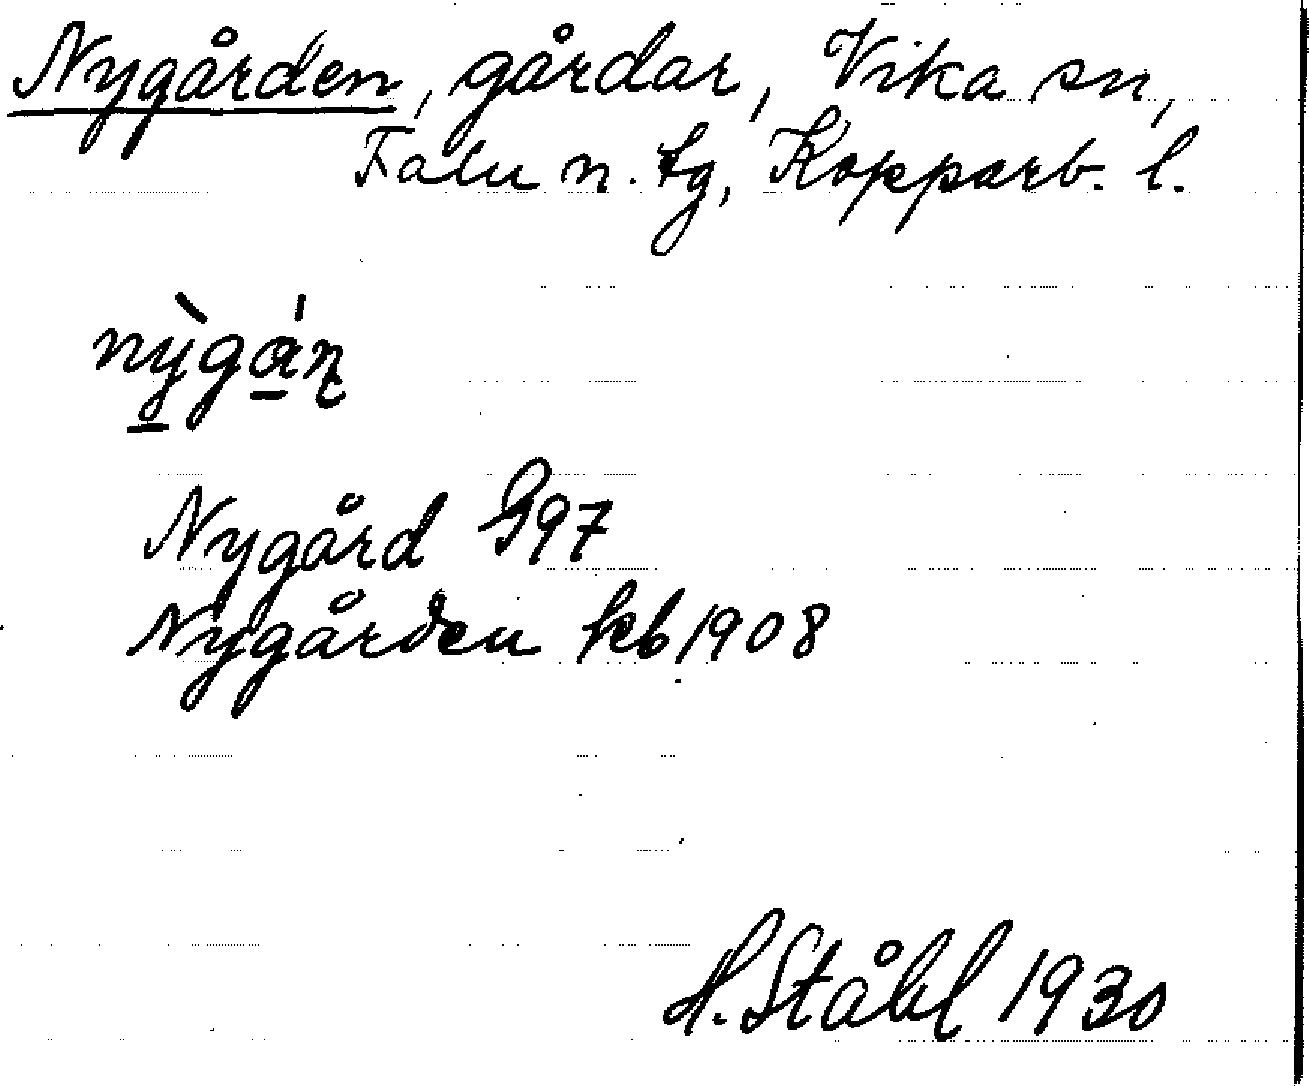 Nygården, gårdar, Vika sn,
Falu n. tg, Kopparb. l.
nỳ̠gá̠ɳ
Nygård G97
Nygården kb 1908
H. Ståhl 1930